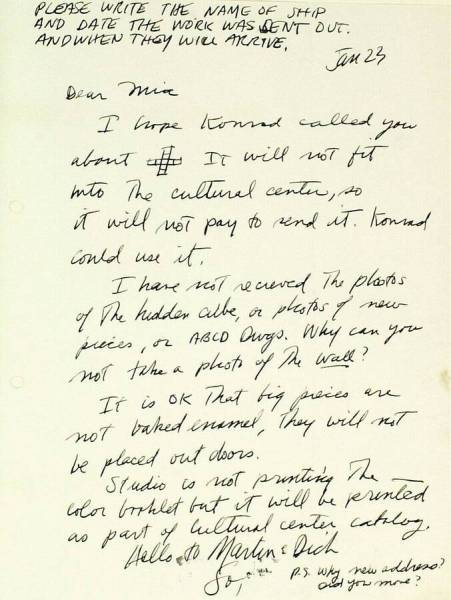 PLEASE WRITE THE NAME OF SHIP
AND DATE THE WORK WAS SENT OUT.
AND WHEN THEY WILL ARRIVE.
Jan 23
Dear Mia
I hope Konrad called you
about It will not fit
into The cultural center, so
it will not pay to send it. Konrad
could use it.
I have not recieved The photos
of The hidden cube, or photos of new
pieces, or ABCD Dwgs. Why can you
not take a photo of The wall?
It is OK That big pieces are
not baked enamel, They will not
be placed out doors.
Studio is not printing The
color booklet but it will be printed
as part of Cultural center catalog.
Hello to Martin & Dick
P.S. Why new address?
did you move?